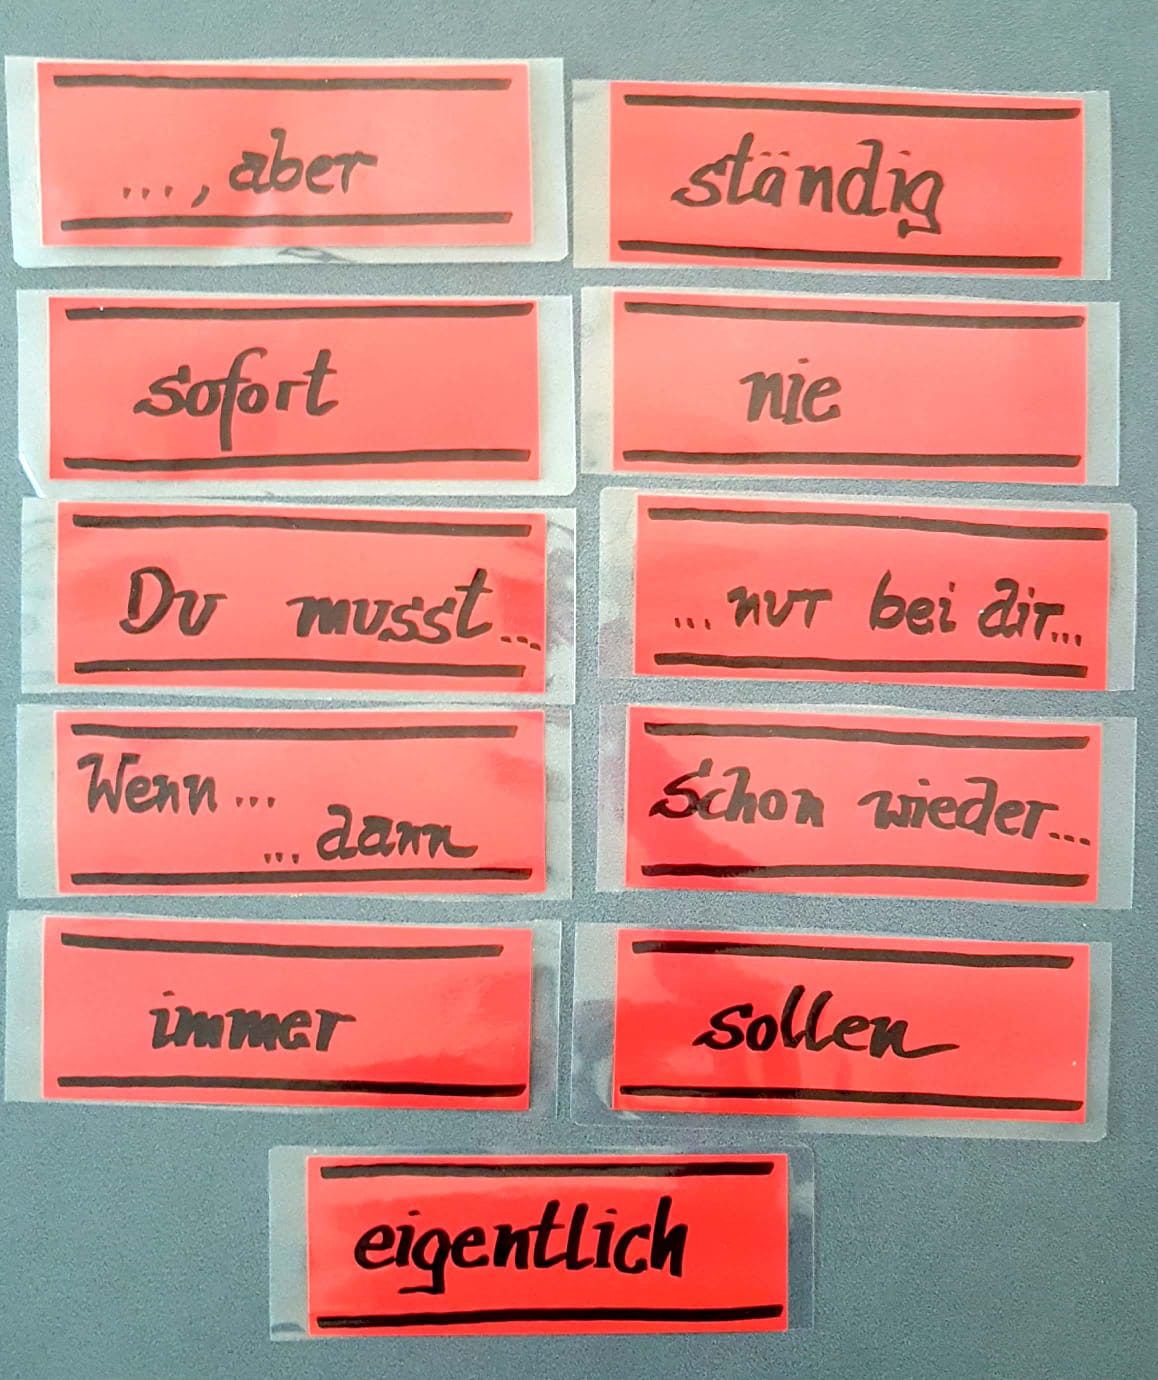 ..., aber
ständig
sofort
nie
Du musst...
... nur bei dir...
Wenn ...
... dann
Schon wieder...
immer
sollen
eigentlich